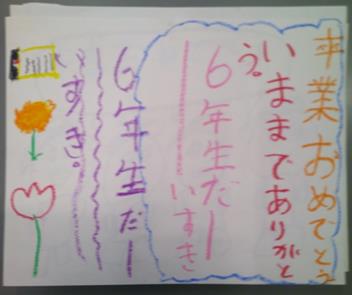 卒業おめでとう
いままでありがと
う。
6年生だー
いすき
6年生だー
いすき。